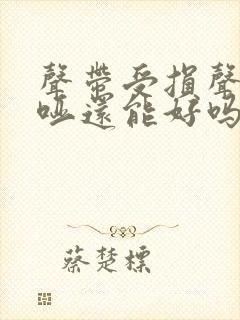 聲帶受損聲
啞還能好嗎
蔡楚標